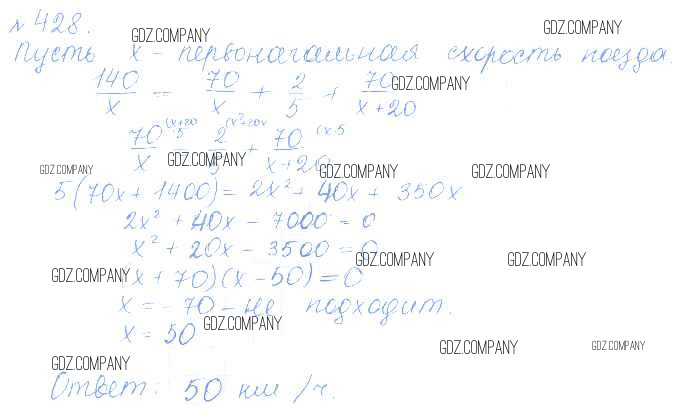 № 428.
GDZ.COMPANY GDZ.COMPANY
Пусть x - первоначальная скорость поезда.
140/x = 70/x + 2/5 + 70/x+20 GDZ.COMPANY
70/x (x+20 5 = 2/5 (x²+20x + 70/x+20 (x·5
GDZ.COMPANY GDZ.COMPANY GDZ.COMPANY GDZ.COMPANY
5(70x + 1400) = 2x² + 40x + 350x
2x² + 40x - 7000 = 0
x² + 20x - 3500 = 0
GDZ.COMPANY GDZ.COMPANY
GDZ.COMPANY x + 70)(x - 50) = 0
x = - 70 - не подходит.
x = 50 GDZ.COMPANY
GDZ.COMPANY GDZ.COMPANY
GDZ.COMPANY
Ответ: 50 км /ч.